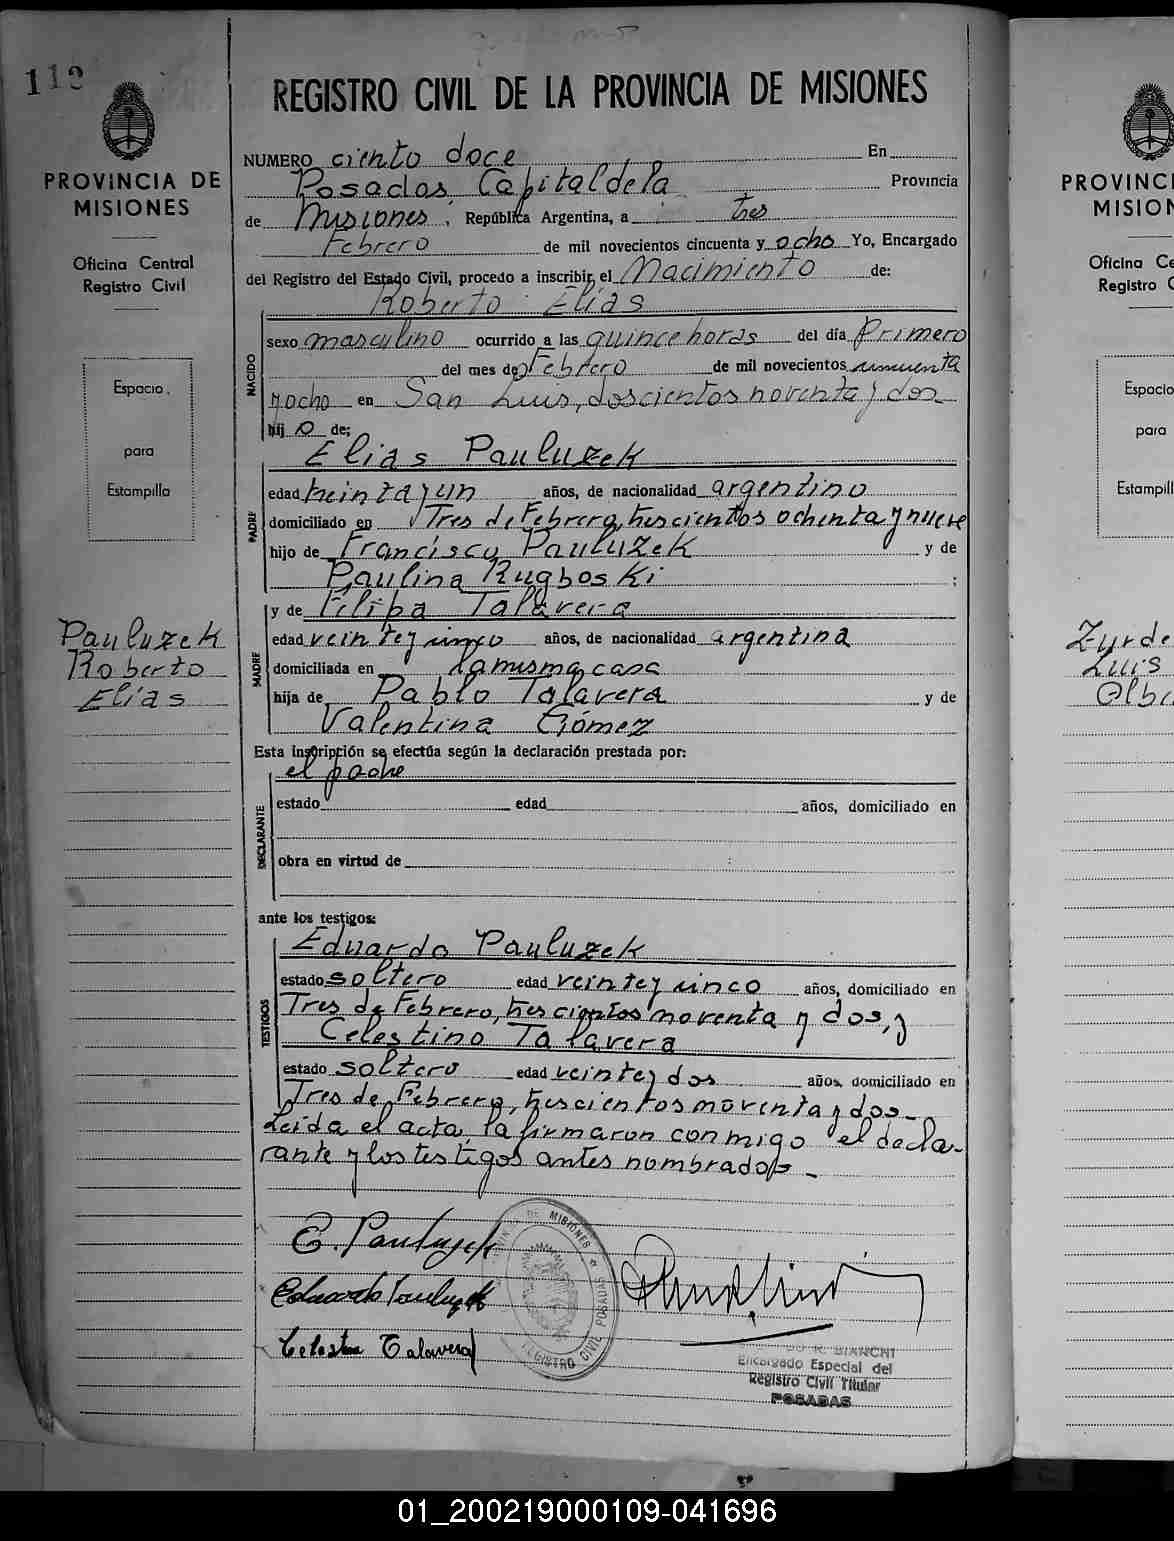 112
PROVINCIA DE
MISIONES
Oficina Central
Registro Civil
Espacio
para
Estampilla
Pauluzek
Roberto
Elías
REGISTRO CIVIL DE LA PROVINCIA DE MISIONES
NUMERO ciento doce En
Posadas, Capital de la Provincia
de Misiones, República Argentina, a tres
Febrero de mil novecientos cincuenta y ocho Yo, Encargado
del Registro del Estado Civil, procedo a inscribir el Nacimiento de:
Roberto Elías
NACIDO
sexo masculino ocurrido a las quince horas del día Primero
del mes de Febrero de mil novecientos cincuenta
y ocho en San Luis, doscientos noventa y dos
hijo de;
Elias Pauluzek
PADRE
edad treinta y un años, de nacionalidad argentino
domiciliado en Tres de Febrero, trescientos ochenta y nueve
hijo de Francisco Pauluzek y de
Paulina Rugboski ;
y de Filipa Talavera
MADRE
edad veinte y cinco años, de nacionalidad argentina
domiciliada en la misma casa
hija de Pablo Talavera y de
Valentina Gómez
Esta inscripción se efectúa según la declaración prestada por:
el padre
DECLARANTE
estado edad años, domiciliado en
obra en virtud de
ante los testigos:
Eduardo Pauluzek
TESTIGOS
estado soltero edad veinte y cinco años, domiciliado en
Tres de Febrero, trescientos noventa y dos, y
Celestino Talavera
estado soltero edad veinte y dos años, domiciliado en
Tres de Febrero, trescientos noventa y dos-
Leida el acta, la firmaron conmigo el decla-
rante y los testigos antes nombrados-
E. Pauluzek
Eduardo Pauluzek
Celestino Talavera
PROVINCIA DE MISIONES
REGISTRO CIVIL POSADAS
R. BIANCHI
Encargado Especial del
Registro Civil Titular
POSADAS
PROVINCI
MISION
Oficina Ce
Registro C
Espacio
para
Estampill
Zurde
Luis
Olbi
01_200219000109-041696